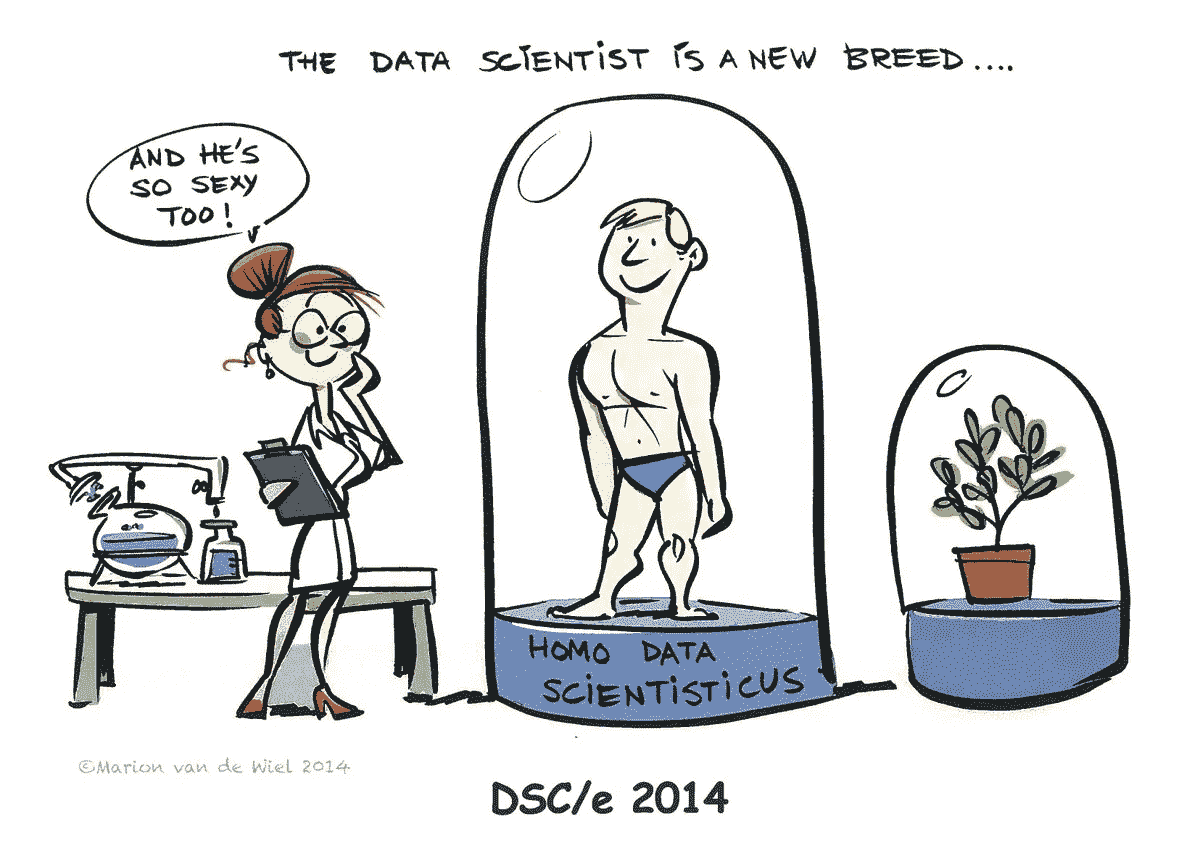 THE DATA SCIENTIST IS A NEW BREED....
AND HE'S
SO SEXY
TOO!
HOMO DATA
SCIENTISTICUS
©Marion van de Wiel 2014
DSC/e 2014